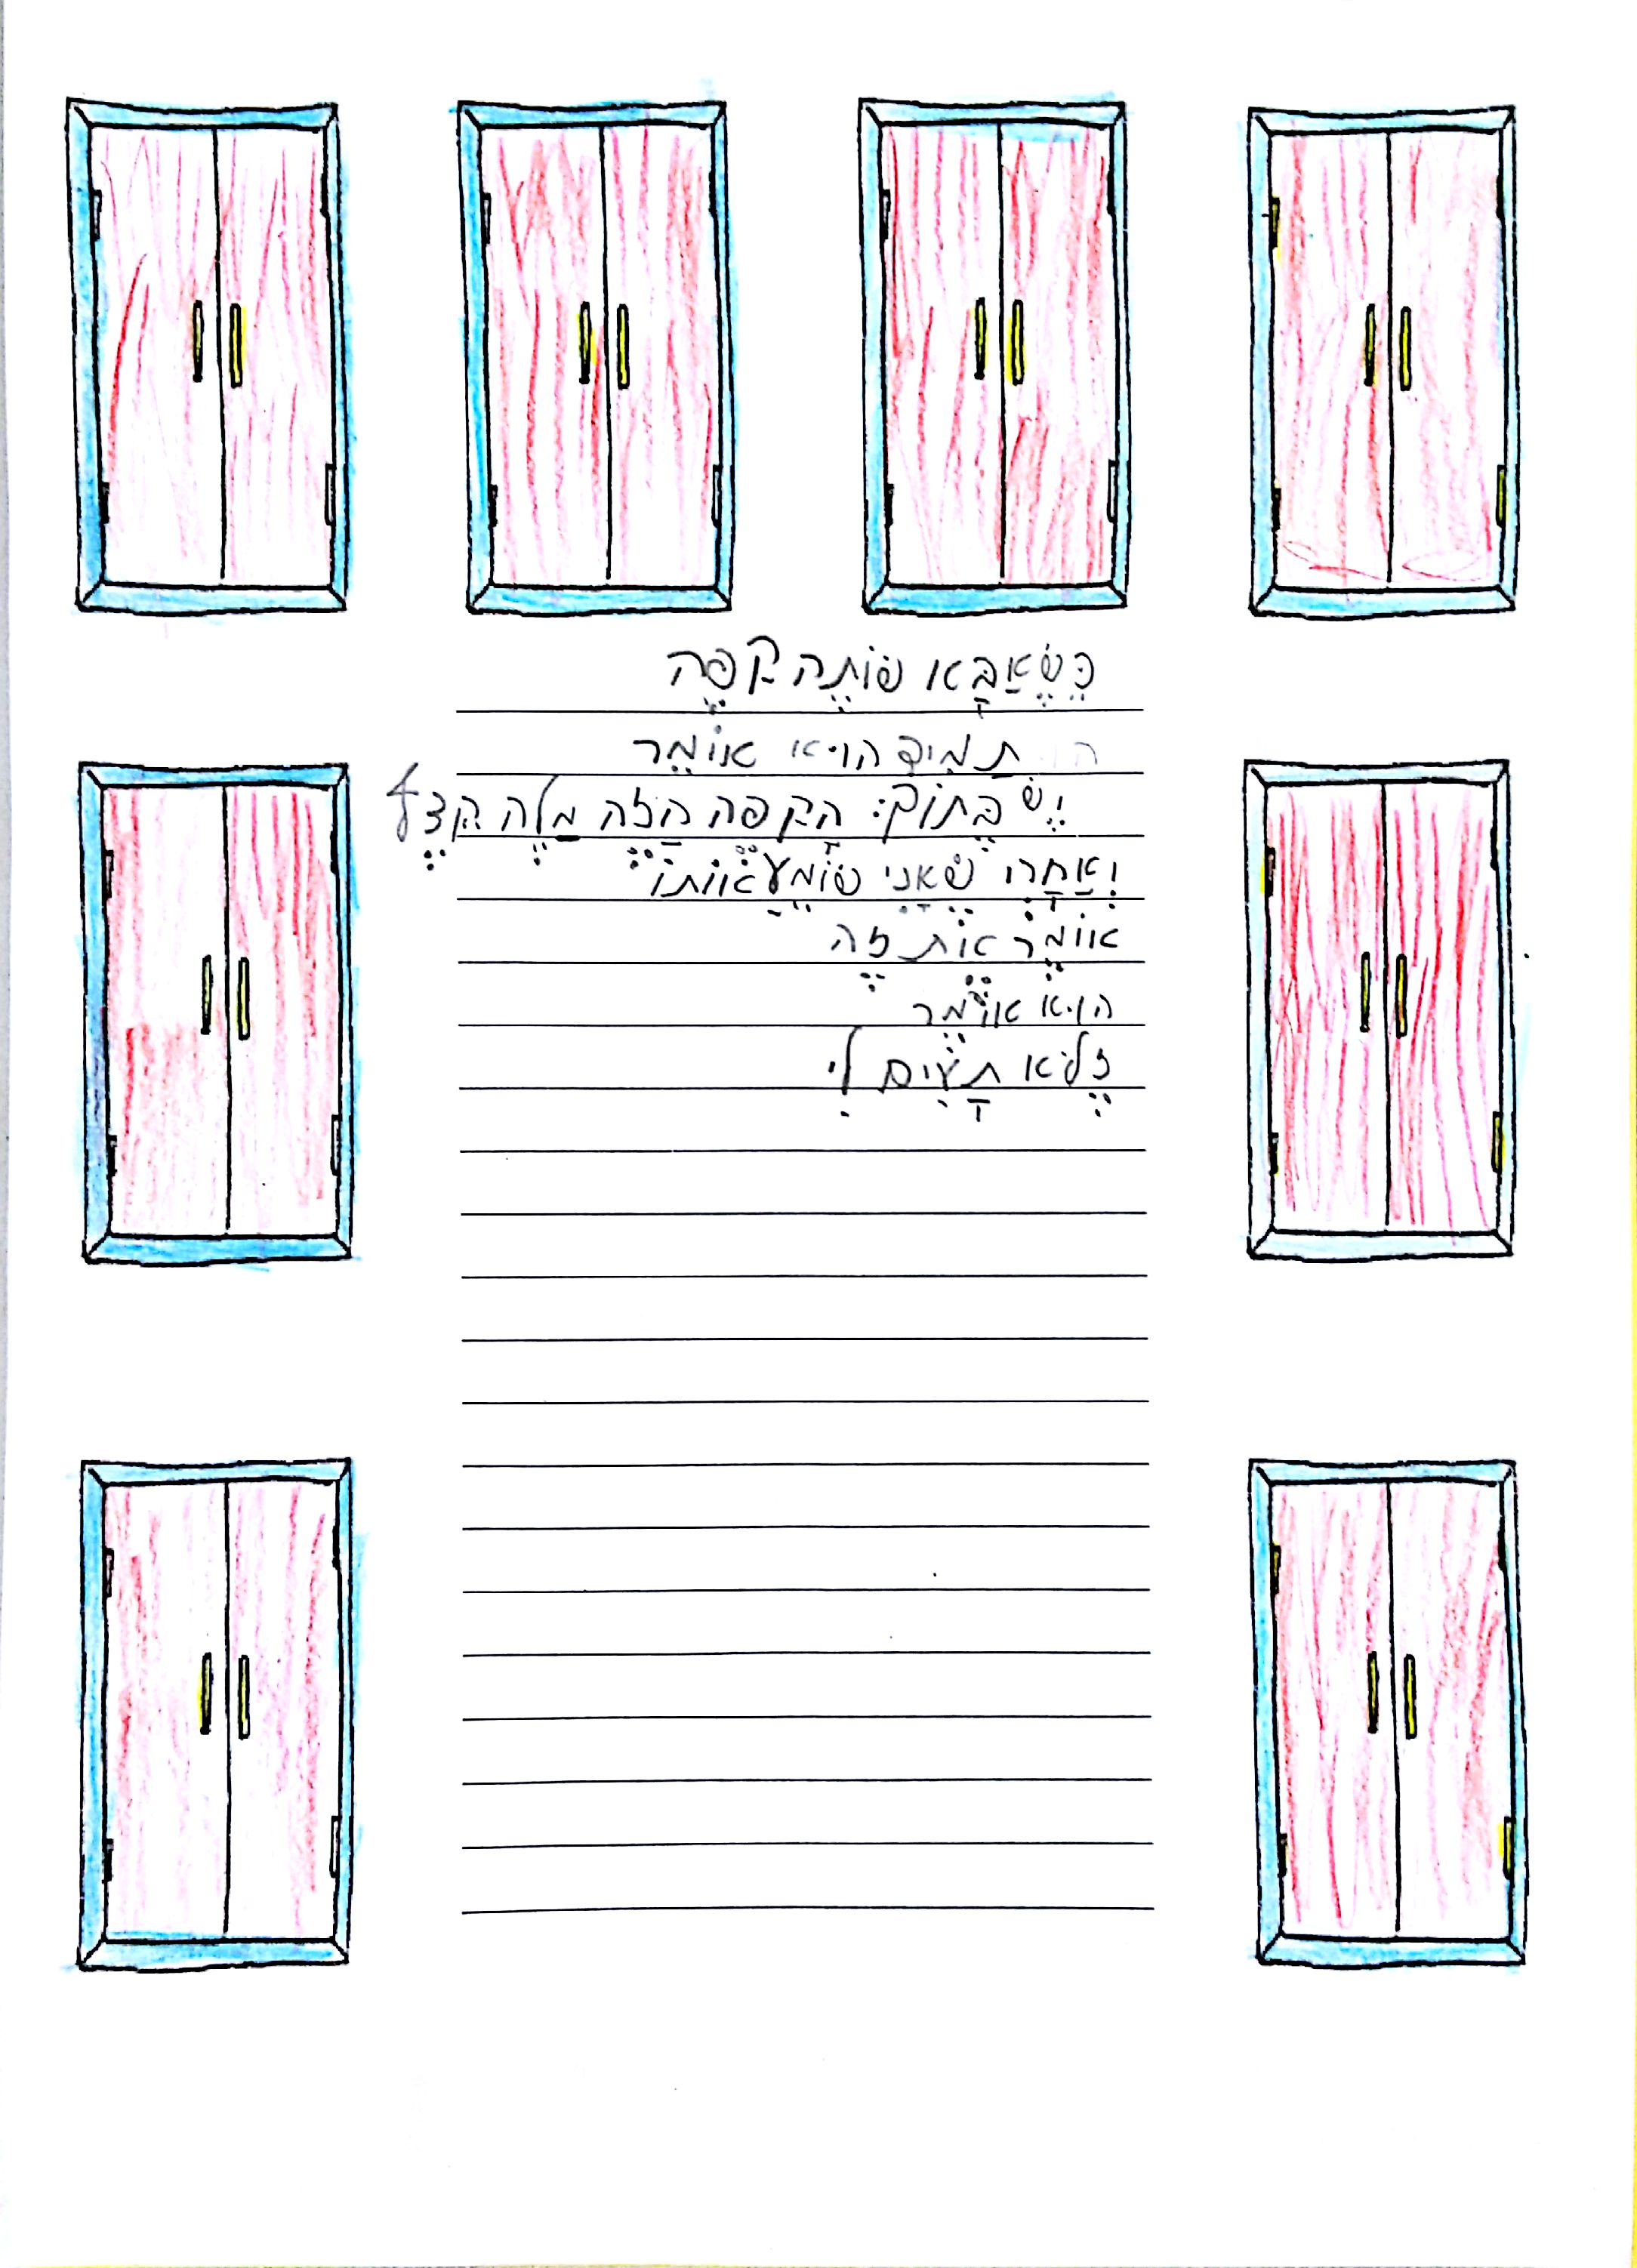 כֶּשֶׁאַבָּא שׁוֹתֶה קפֶה
תַמִיד הוּא אוֹמֵר
יֵשׁ בֶּתוֹךְ: הָקפֶה הַזֶה מַלֶה קֶצֶף
וְאַחֲרֵ שֶׁאָנִי שׁוֹמֵעַ אוֹתוֹ
אוֹמֵר אוֹת זֶה
הוּא אוֹמֵר
זֶלֹא תָעִים לִי